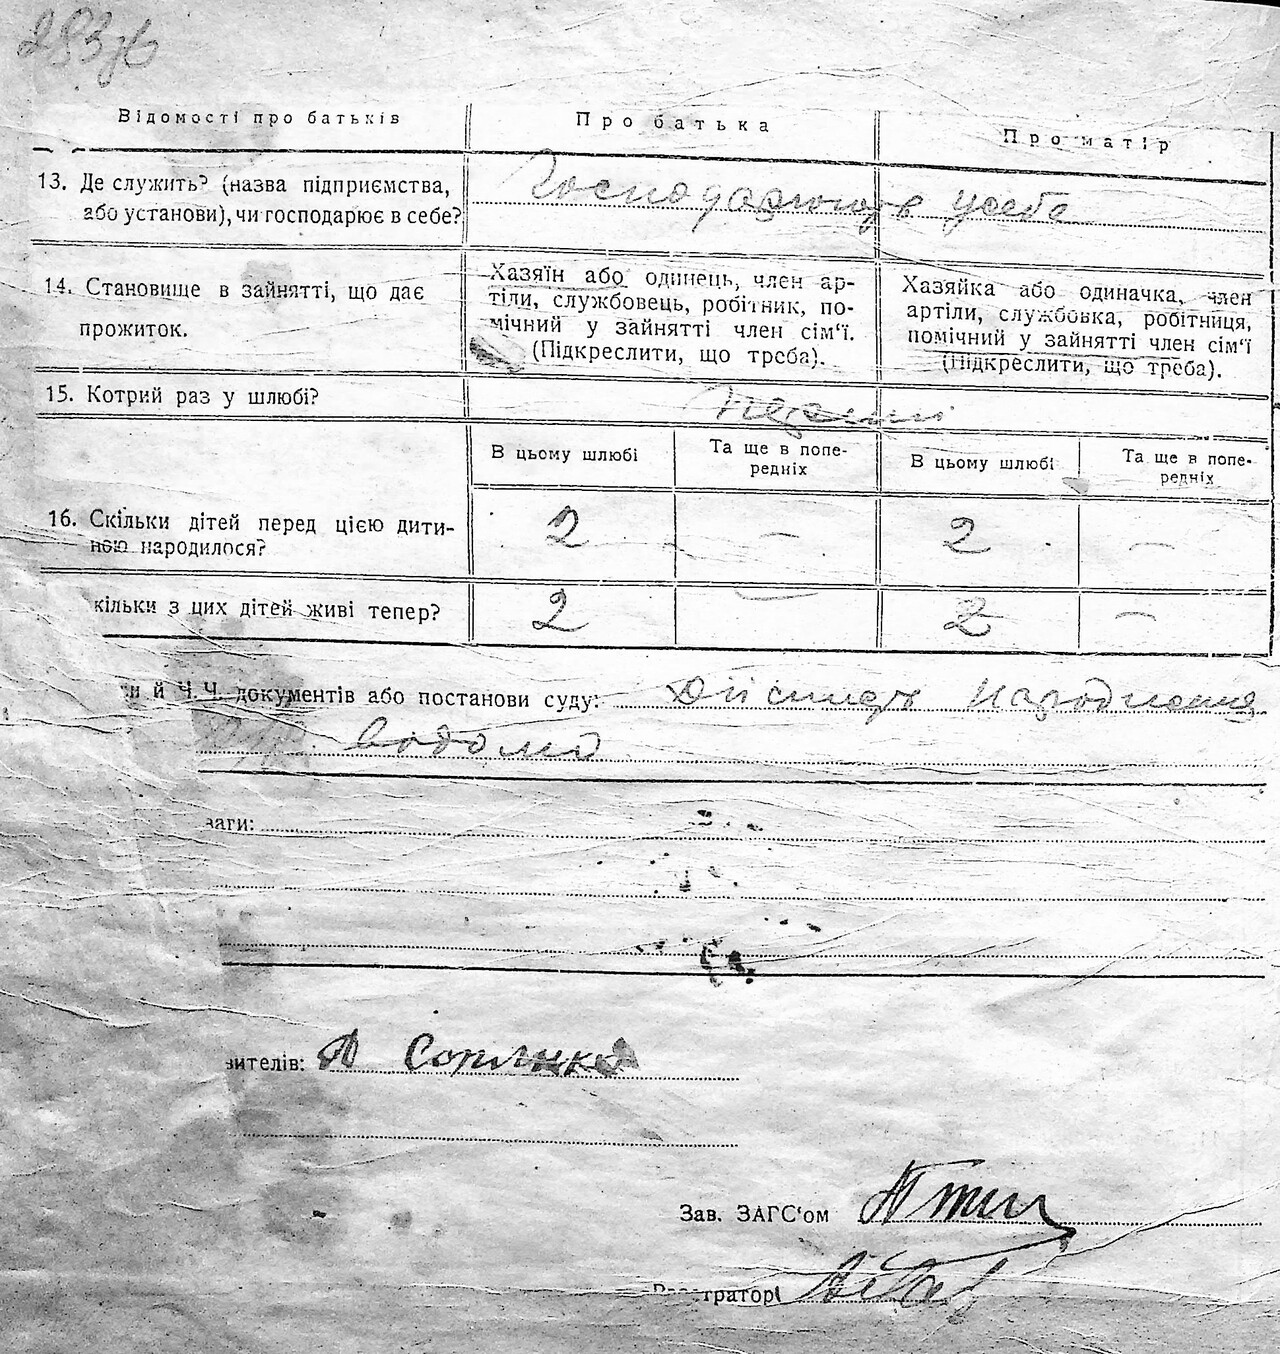 283 зв
Відомості про батьків
Про батька
Про матір
13. Де служить? (назва підприємства,
або установи), чи господарює в себе?
Господарюють у себе
14. Становище в зайнятті, що дає
прожиток.
Хазяїн або одинець, член ар-
тіли, службовець, робітник, по-
мічний у зайнятті член сім'ї.
(Підкреслити, що треба).
Хазяйка або одиначка, член
артіли, службовка, робітниця,
помічний у зайнятті член сім'ї
(Підкреслити, що треба).
15. Котрий раз у шлюбі?
В цьому шлюбі
Та ще в попе-
редніх
В цьому шлюбі
Та ще в попе-
редніх
16. Скільки дітей перед цією дити-
ною народилося?
2 — 2 —
кільки з цих дітей живі тепер?
2 — 2 —
й Ч.Ч. документів або постанови суду: Дійсність народження
відомо
ваги:
вителів:
Зав. ЗАГС'ом
тратор